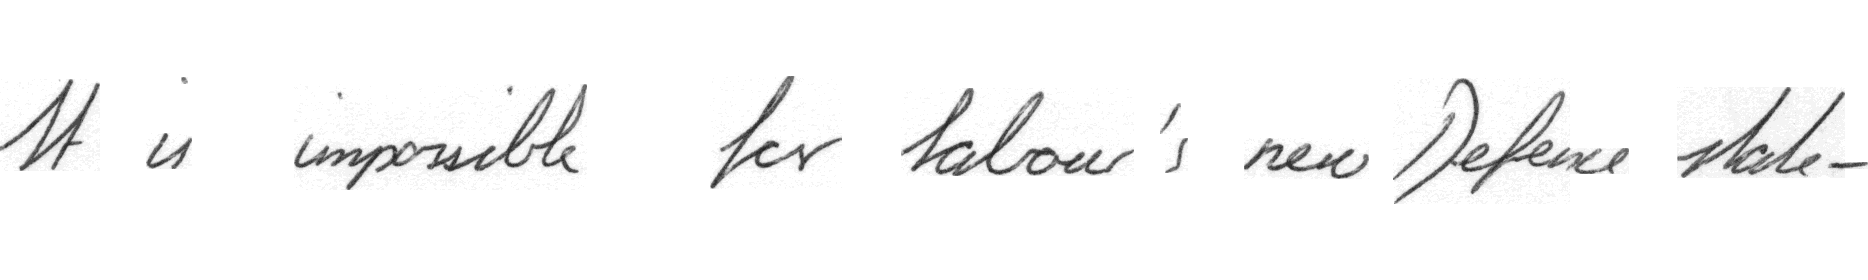 It is impossible for Labour's new Defence state-